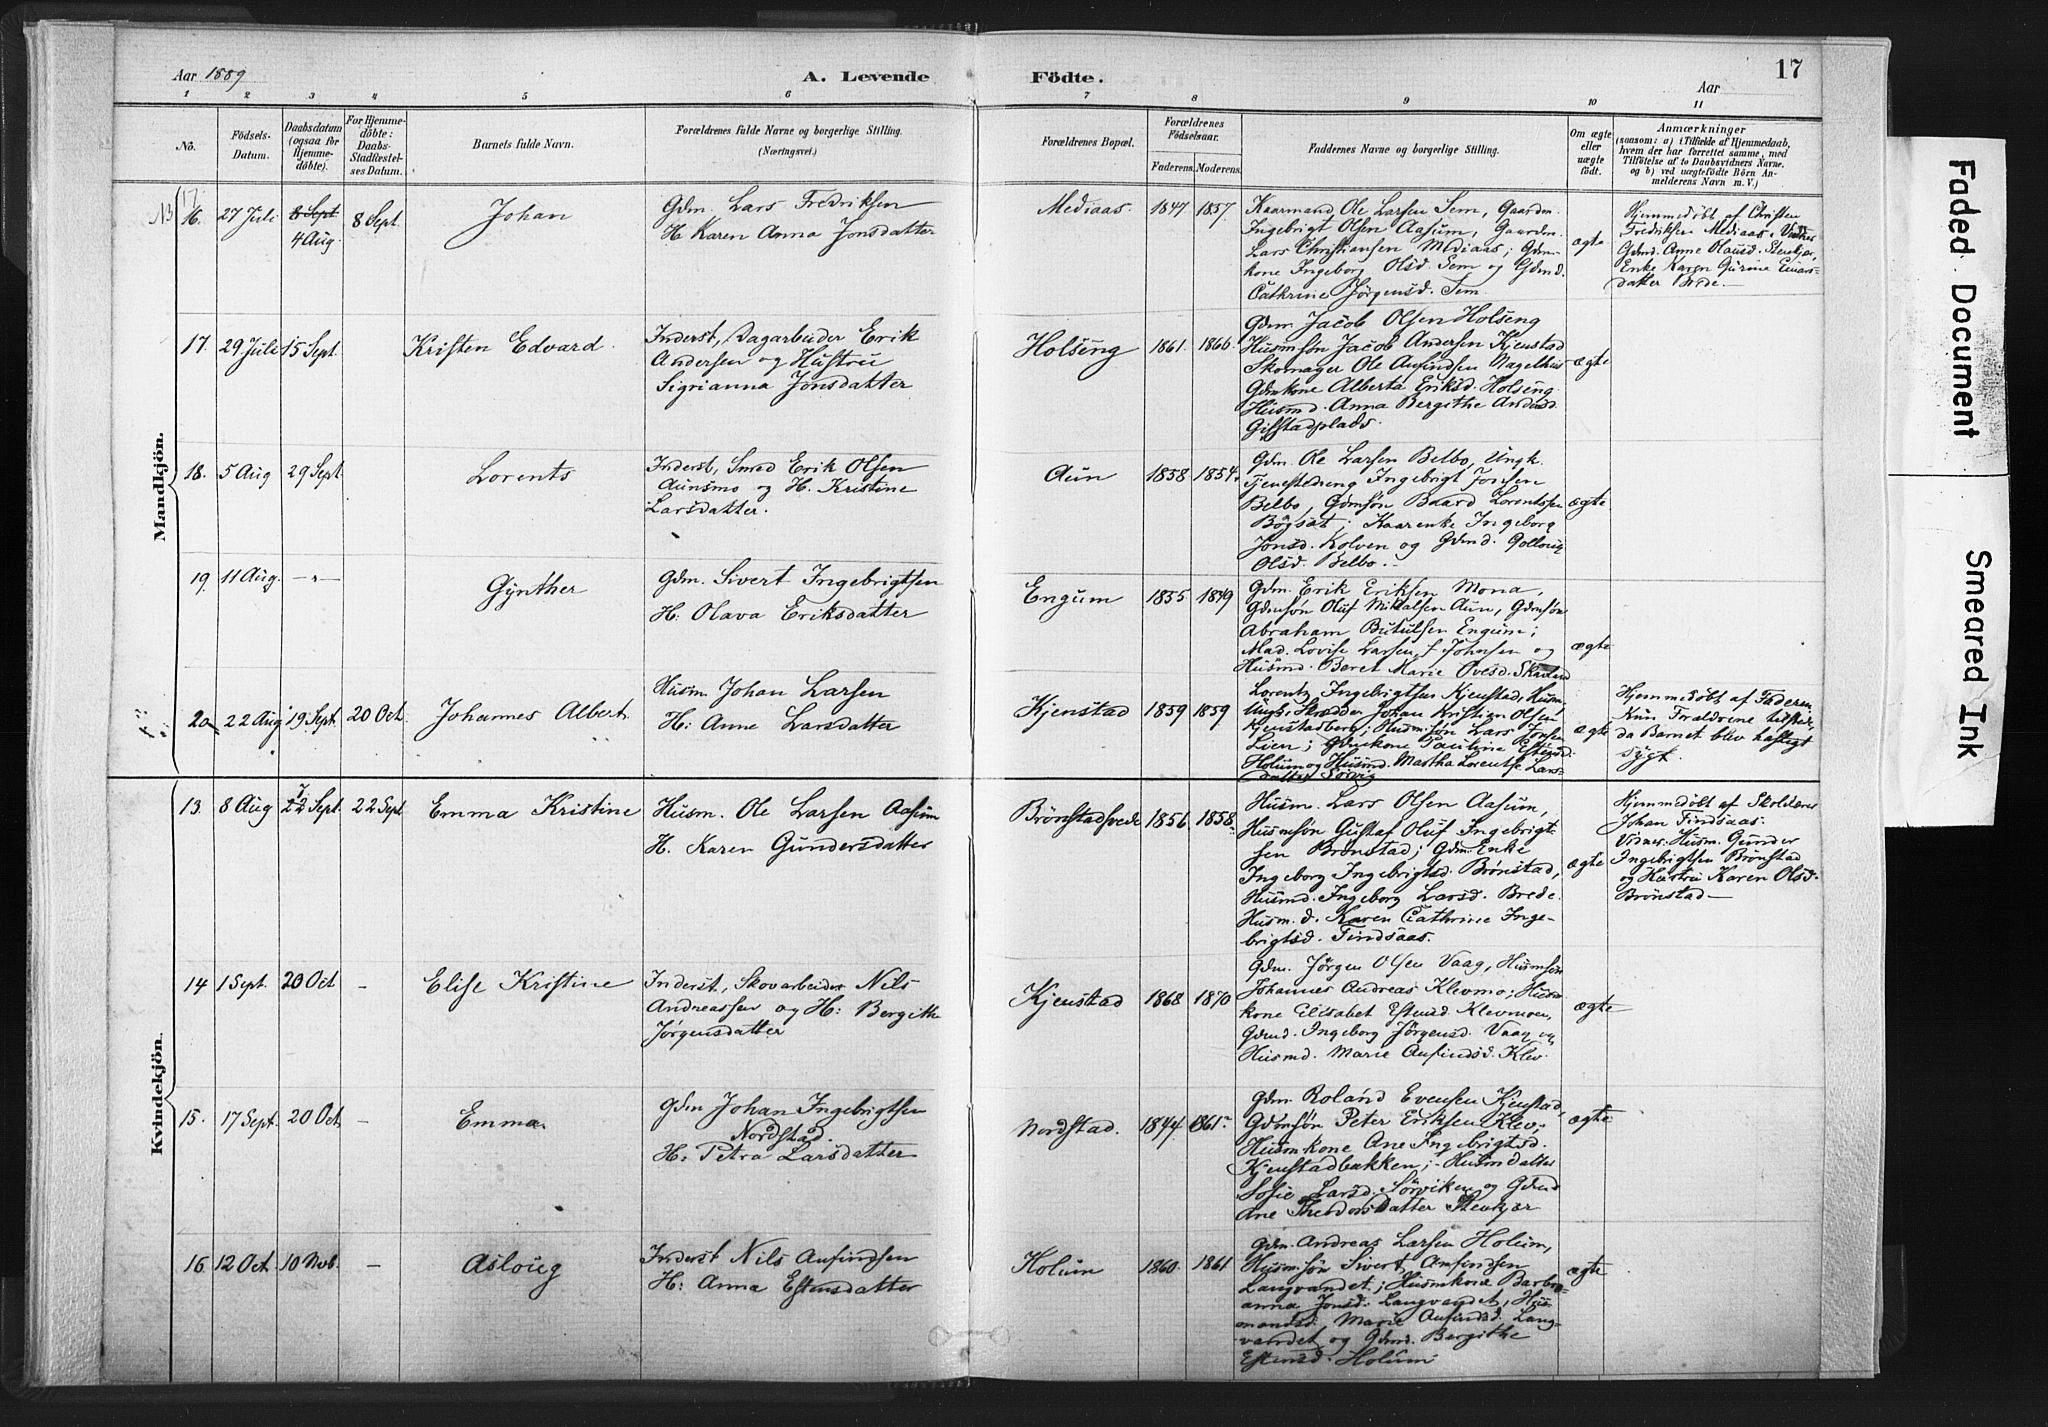 Aar 1889
A. Levende Födte.
17
Aar
1 2 3 4 5 6 7 8 9 10 11
No.
Födsels-Datum.
Daabsdatum (ogsaa for Hjemme-döbte).
For Hjemme-döbte: Daabs-Stadfæstel-ses Datum.
Barnets fulde Navn.
Forældrenes fulde Navne og borgerlige Stilling.
(Næringsvei.)
Forældrenes Bopæl.
Forældrenes Födselsaar.
Faderens. Moderens.
Faddernes Navne og borgerlige Stilling.
Om ægte eller uægte födt.
Anmærkninger
(saasom: a) i Tilfælde af Hjemmedaab,
hvem der har forrettet samme, med
Tilföielse af to Daabsvidners Navne,
og b) ved uægtefödte Börn An-
melderens Navn m. V.)
Mandkjön.
NB 17
16. 27 Juli 8 Sept 4 Aug. 8 Sept. Johan
Gdm. Lars Fredriksen
H Karen Anna Jonsdatter
Mediaas. 1847 1857
Kaarmand Ole Larsen Sem, Gaardm.
Ingebrigt Olsen Aasum, Gaardm.
Lars Christiansen Mediaas; Gdm-
kone Ingeborg Olsd. Sem og Gdmd.
Cathrine Jörgensd. Sem.
ægte
Hjemmedöbt af Christen
Fredriksen Mediaas. Vidner
Gdmd. Anne Olausd. Stenkjær,
Enke Karen Gurine Einars-
datter Brede.—
17. 29 Juli 15 Sept. Kristen Edvard.
Inderst, Dagarbeider Erik
Andersen og Hustru
Sigrianna Jonsdatter
Holseng 1861. 1866.
Gdm. Jacob Olsen Holseng
Husmsön Jacob Andersen Kjenstad
Skomager Ole Anfindsen Nagelhus
Gdmkone Alberta Eriksd. Holseng
Husmd. Anna Bergithe Andersd.
Gifstadplads.
ægte
18. 5 Aug 29 Sept. Lorents
Inderst, Smed Erik Olsen
Aunsmo og H. Kristine
Larsdatter.
Aun 1858 1854.
Gdm. Ole Larsen Belbo, Ungk.
Tjenestedreng Ingebrigt Jonsen
Belbo, Gdmsön Baard Lorentssen
Bögset; Kaarenke Ingeborg
Jonsd. Kolven og Gdmd. Gollaug
Olsd. Belbo.
ægte
19. 11 Aug. —"— Gynther
Gdm. Sivert Ingebrigtsen
H: Olava Eriksdatter
Engum 1855. 1849
Gdm. Erik Eriksen Mona,
Gdmsön Oluf Mikalsen Aun, Gdmsön
Abraham Butulsen Engum;
Mad. Lovise Larsen, f. Johnsen og
Husmd. Beret Marie Ovesd. Skavland
ægte
20 22 Aug 19 Sept. 20 Oct. Johannes Albert.
Husm. Johan Larsen
H: Anne Larsdatter
Kjenstad 1859 1859
Lorentz Ingebrigtsen Kjenstad, Husm.
Ungk. Skrædder Johan Kristian Olsen
Kjenstadberg; Husm.sön Lars Jonsen
Lien; Gdmkone Pauline Estensd.
Holum og Husmd. Martha Lorentse Lars-
datter Sörvig
ægte
Hjemmedöbt af Faderen.
Kun Forældrene tilstede,
da Barnet blev hastigt
sygt.
Kvindekjön.
13. 8 Aug 22 Sept. 22 Sept Emma Kristine
Husm. Ole Larsen Aasum
H. Karen Gundersdatter
Brönstadsvede 1856 1858.
Husm. Lars Olsen Aasum,
Husmsön Gustaf Oluf Ingebrigt-
sen Brönstad; Gdm. Enke
Ingeborg Ingebrigtsd. Brönstad,
Husmd. Ingeborg Larsd. Brede.
Husm. d. Karen Cathrine Inge-
brigtsd. Findsaas.
ægte
Hjemmedöbt af Skolelærer
Johan Findsaas.
Vidner: Husm. Gunder
Ingebrigtsen Brönstad
og Hustru Karen Olsd.
Brönstad—
14 1 Sept. 20 Oct – Elise Kristine
Inderst, Skovarbeider Nils
Andreassen og H: Bergithe
Jörgensdatter
Kjenstad 1868 1870
Gdm. Jörgen Olsen Vaag, Husmsön
Johannes Andreas Klevmo; Husm-
kone Elisabet Estensd Klevmoen,
Gdmd. Ingeborg Jörgensd. Vaag og
Husmd. Marie Anfindsd. Klev.
ægte
15. 17 Sept. 20 Oct. – Emma.
Gdm Johan Ingebrigtsen
Nordstad.
H: Petra Larsdatter
Nordstad. 1844 1861
Gdm. Roland Evensen Kjenstad,
Gdmsön Peter Eriksen Klev;
Husmkone Ane Ingebrigtsd.
Kjenstadbakken; Husmdatter
Sofie Larsd. Sörviken og Gdmd
Ane Theodorsdatter Stenkjær
ægte
16. 12 Oct. 10 Nvb. – Asloug
Inderst Nils Anfindsen
H: Anna Estensdatter
Holum 1860. 1861
Gdm. Andreas Larsen Holum,
Husm.sön Sivert Anfindsen
Langvandet; Husmkone Barbro-
anna Jonsd. Langvandet, Hus-
mandsd. Marie Anfindsd. Lang-
vandet og Gdmd. Bergithe
Estensd. Holum
ægte
Faded Document
Smeared Ink